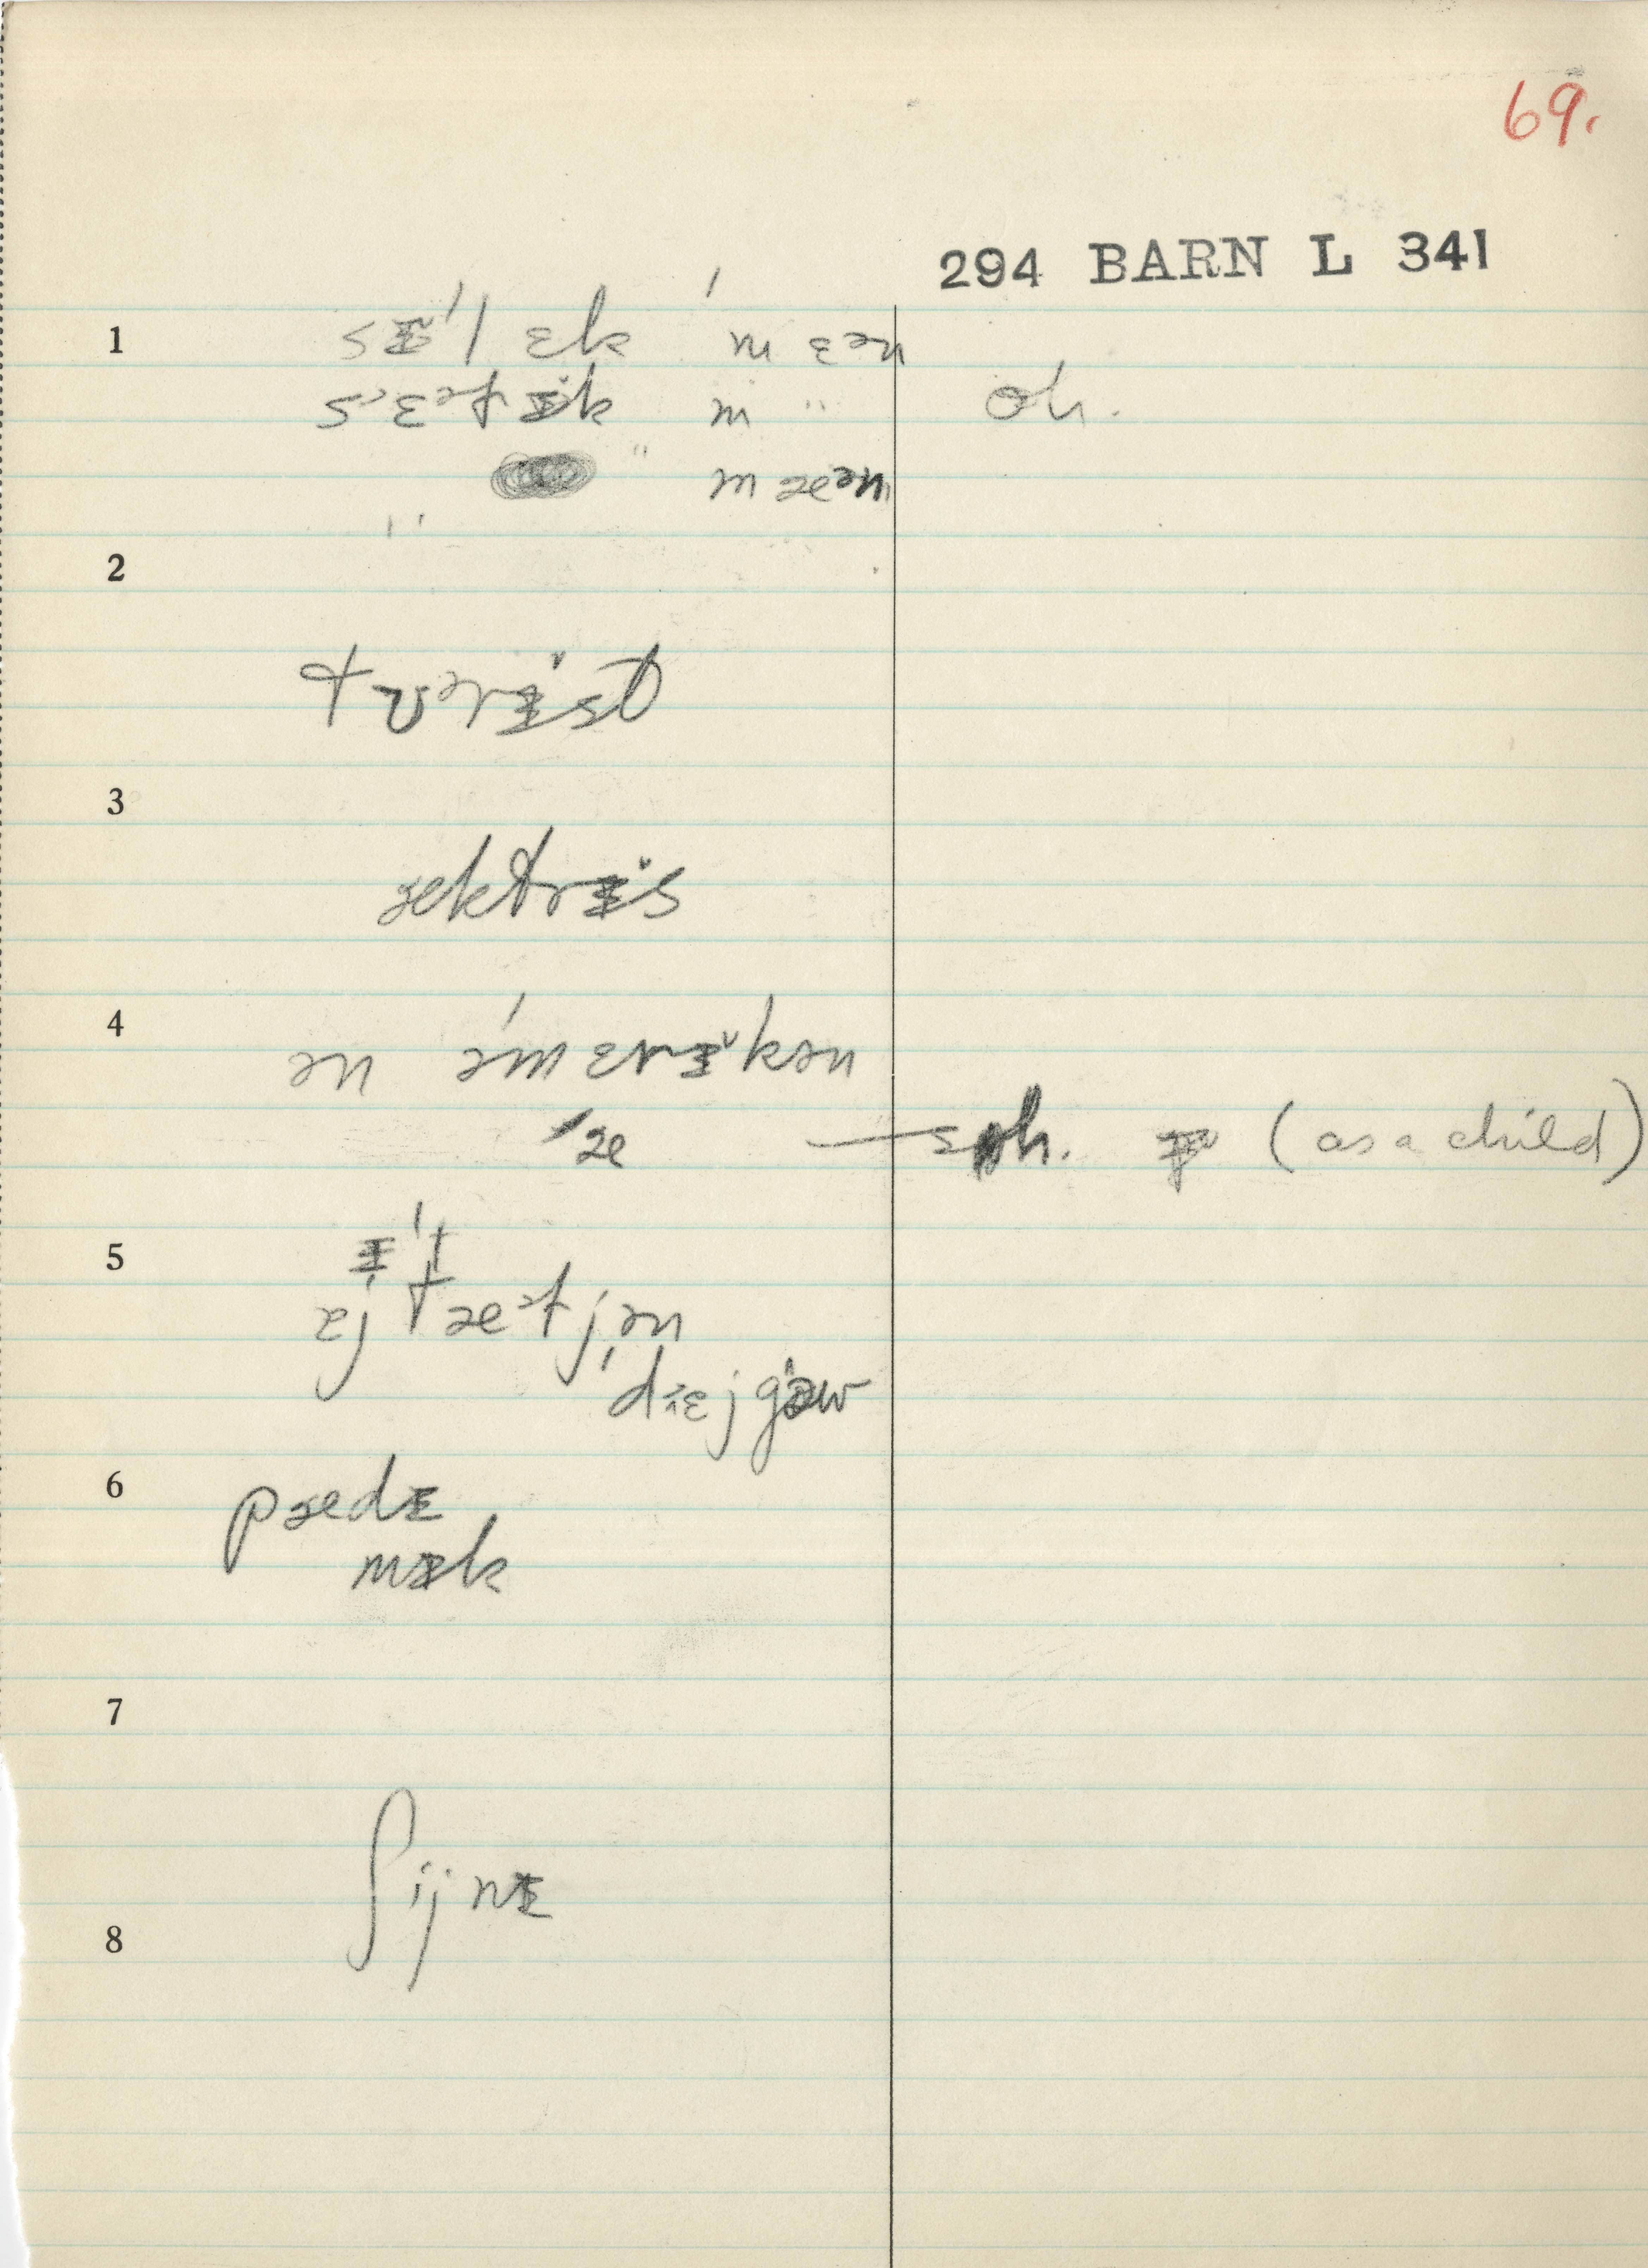 69.
294 BARN L 341
1 sɪ'l ɛk 'm ɛən
s'ɛətɪk m " oh.
" m æən
"
2
tʊərɪst
3
æktrɪs
4
ən əmɛrɪkən
'æ (as a child)
5
æj tæətjən
diejgəw
6 pædɪ
mɪk
7
ʃijnɪ
8